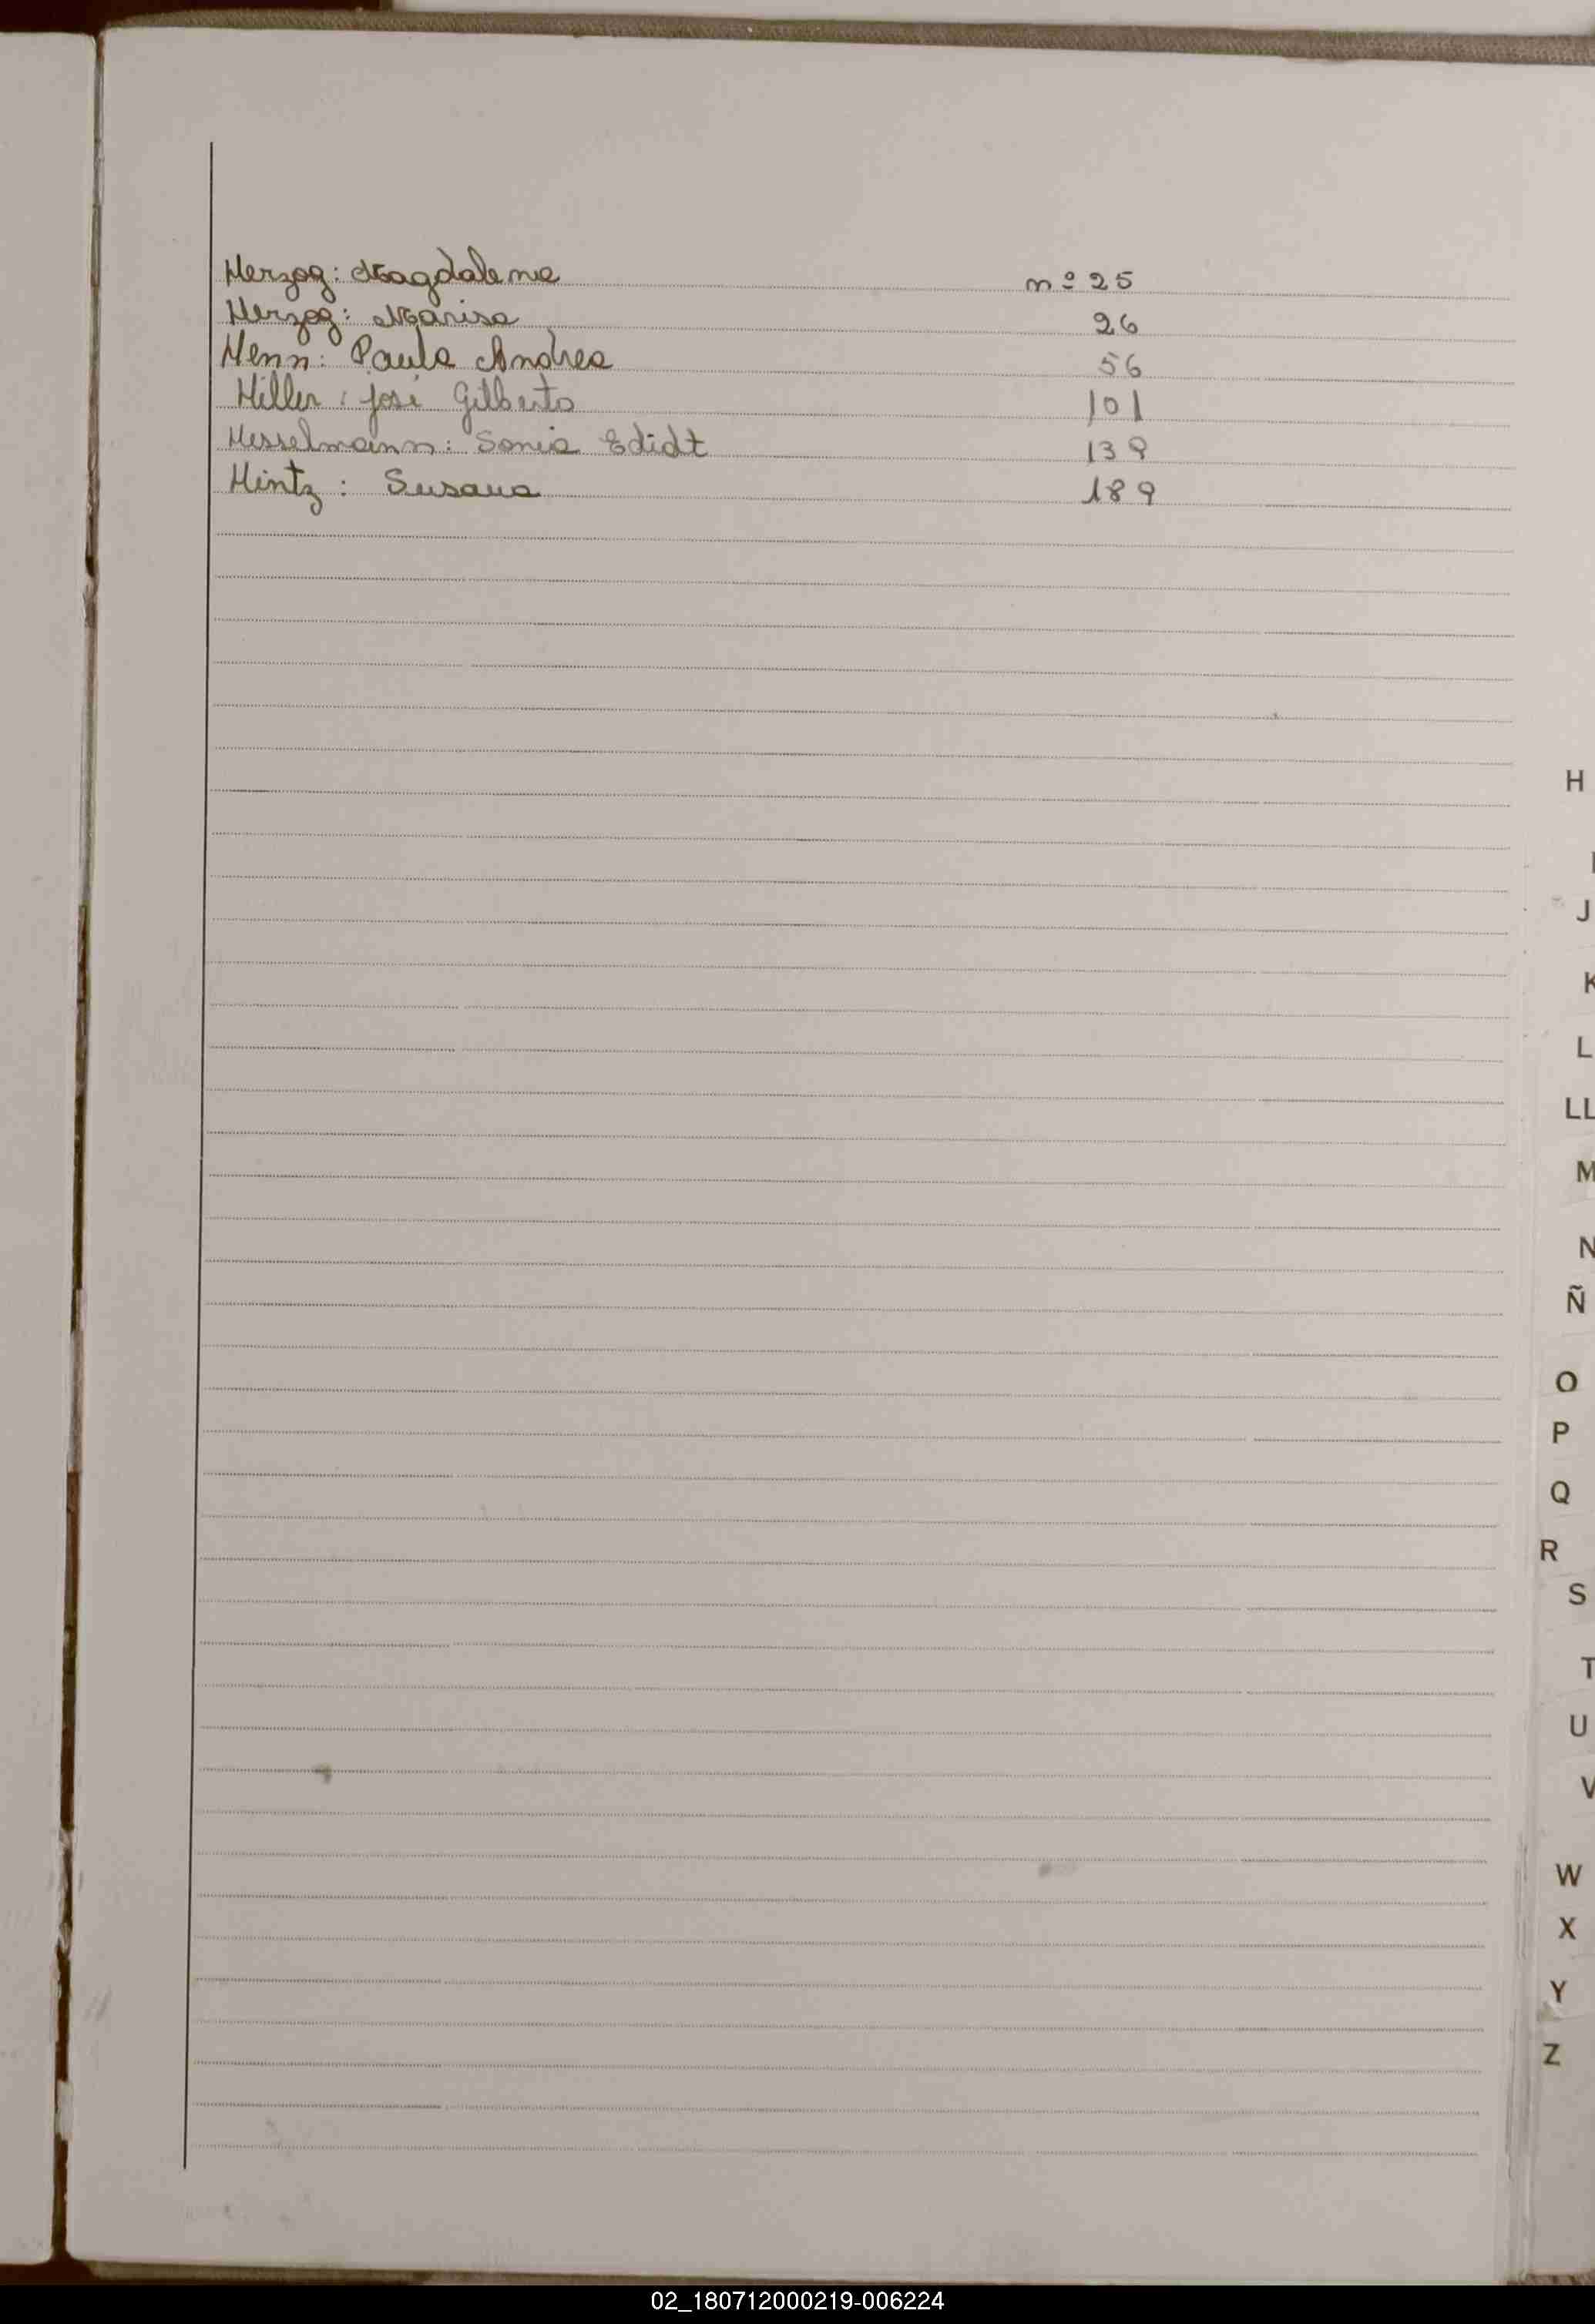 Herzog: Magdalena nº 25
Herzog: Marisa 26
Henn: Paula Andrea 56
Hiller: José Gilberto 101
Hesselmann: Sonia Edidt 139
Hintz: Susana 189
H
I
J
K
L
LL
M
N
Ñ
O
P
Q
R
S
T
U
V
W
X
Y
Z
02_180712000219-006224